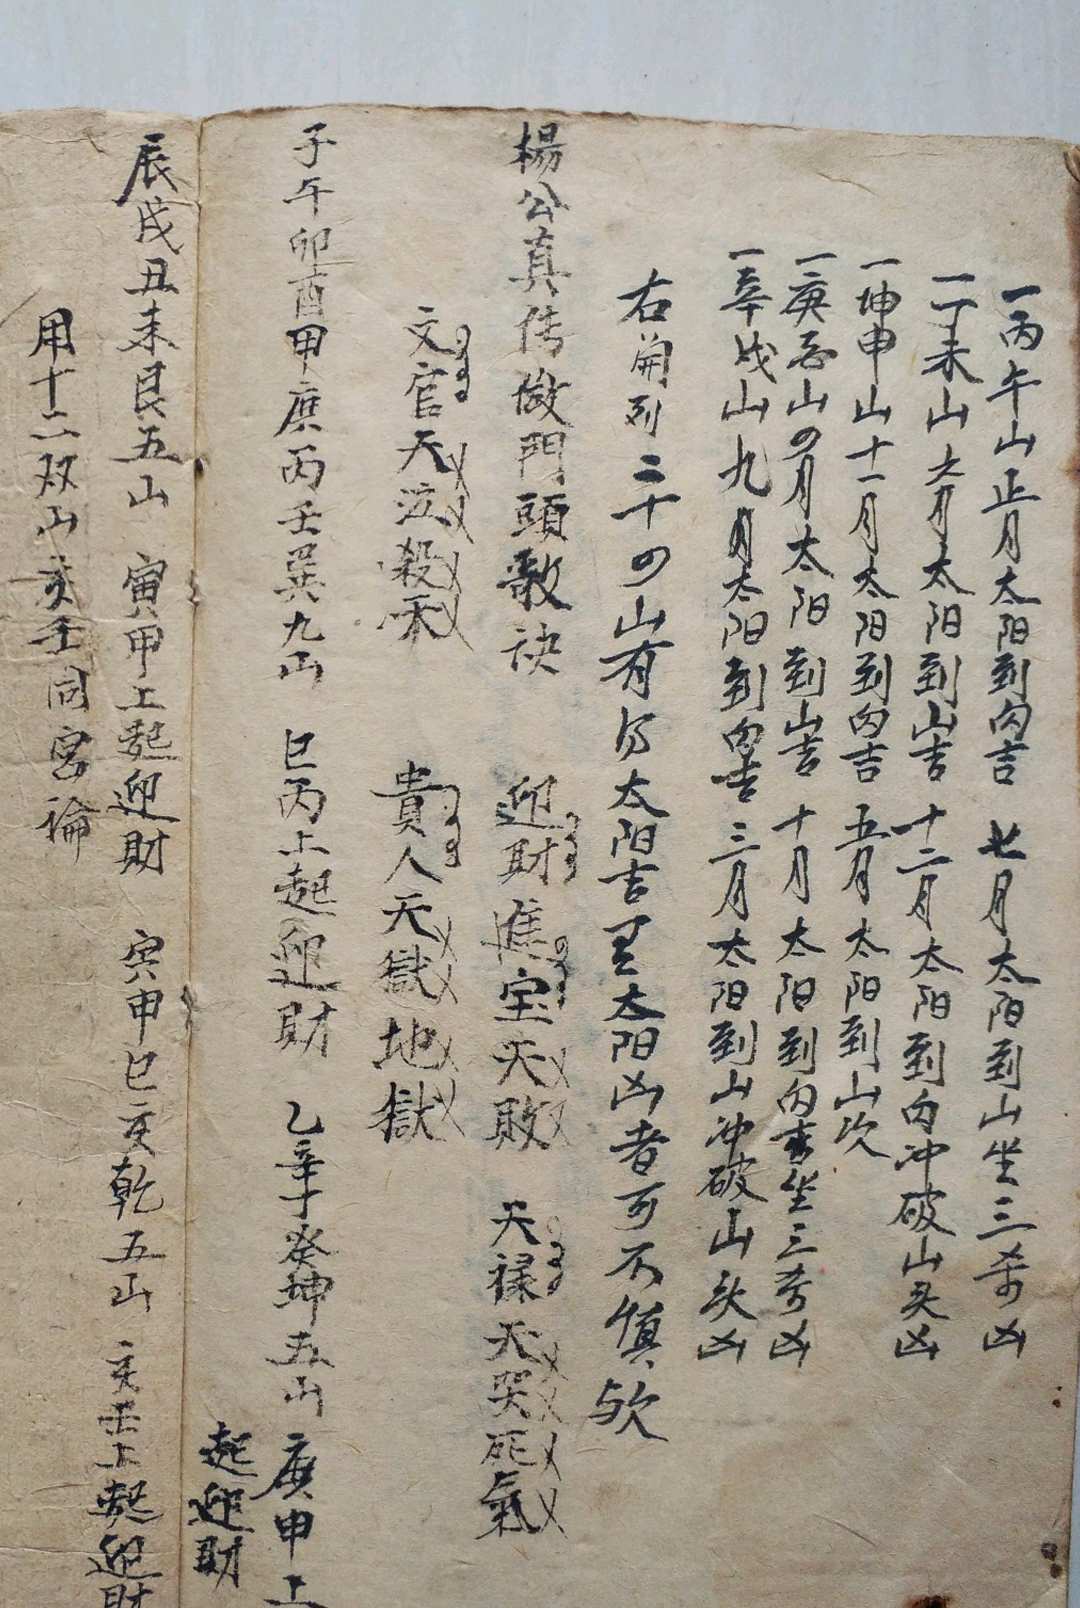 一丙午山正月太阳到向吉 七月太阳到山坐三煞凶
一丁未山六月太阳到山吉 十二月太阳到向冲破山头凶
一坤申山十一月太阳到向吉 五月太阳到山次
一庚酉山四月太阳到山吉 十月太阳到向吉坐三煞凶
一辛戌山九月太阳到向吉 三月太阳到山冲破山头凶
右開列二十四山有得太阳吉 太阳凶者可不慎欤
楊公真传做門頭敬诀 迎財進宝天敗 天禄天哭死氣
文官天泣殺 貴人天獄地獄
子午卯酉甲庚丙壬巽九山 巳丙上起迎財 乙辛丁癸坤五山 庚申上
起迎財
辰戌丑未艮五山 寅甲上起迎財 寅申巳亥乾五山 亥壬上起迎財
用十二双山亥壬同宮論